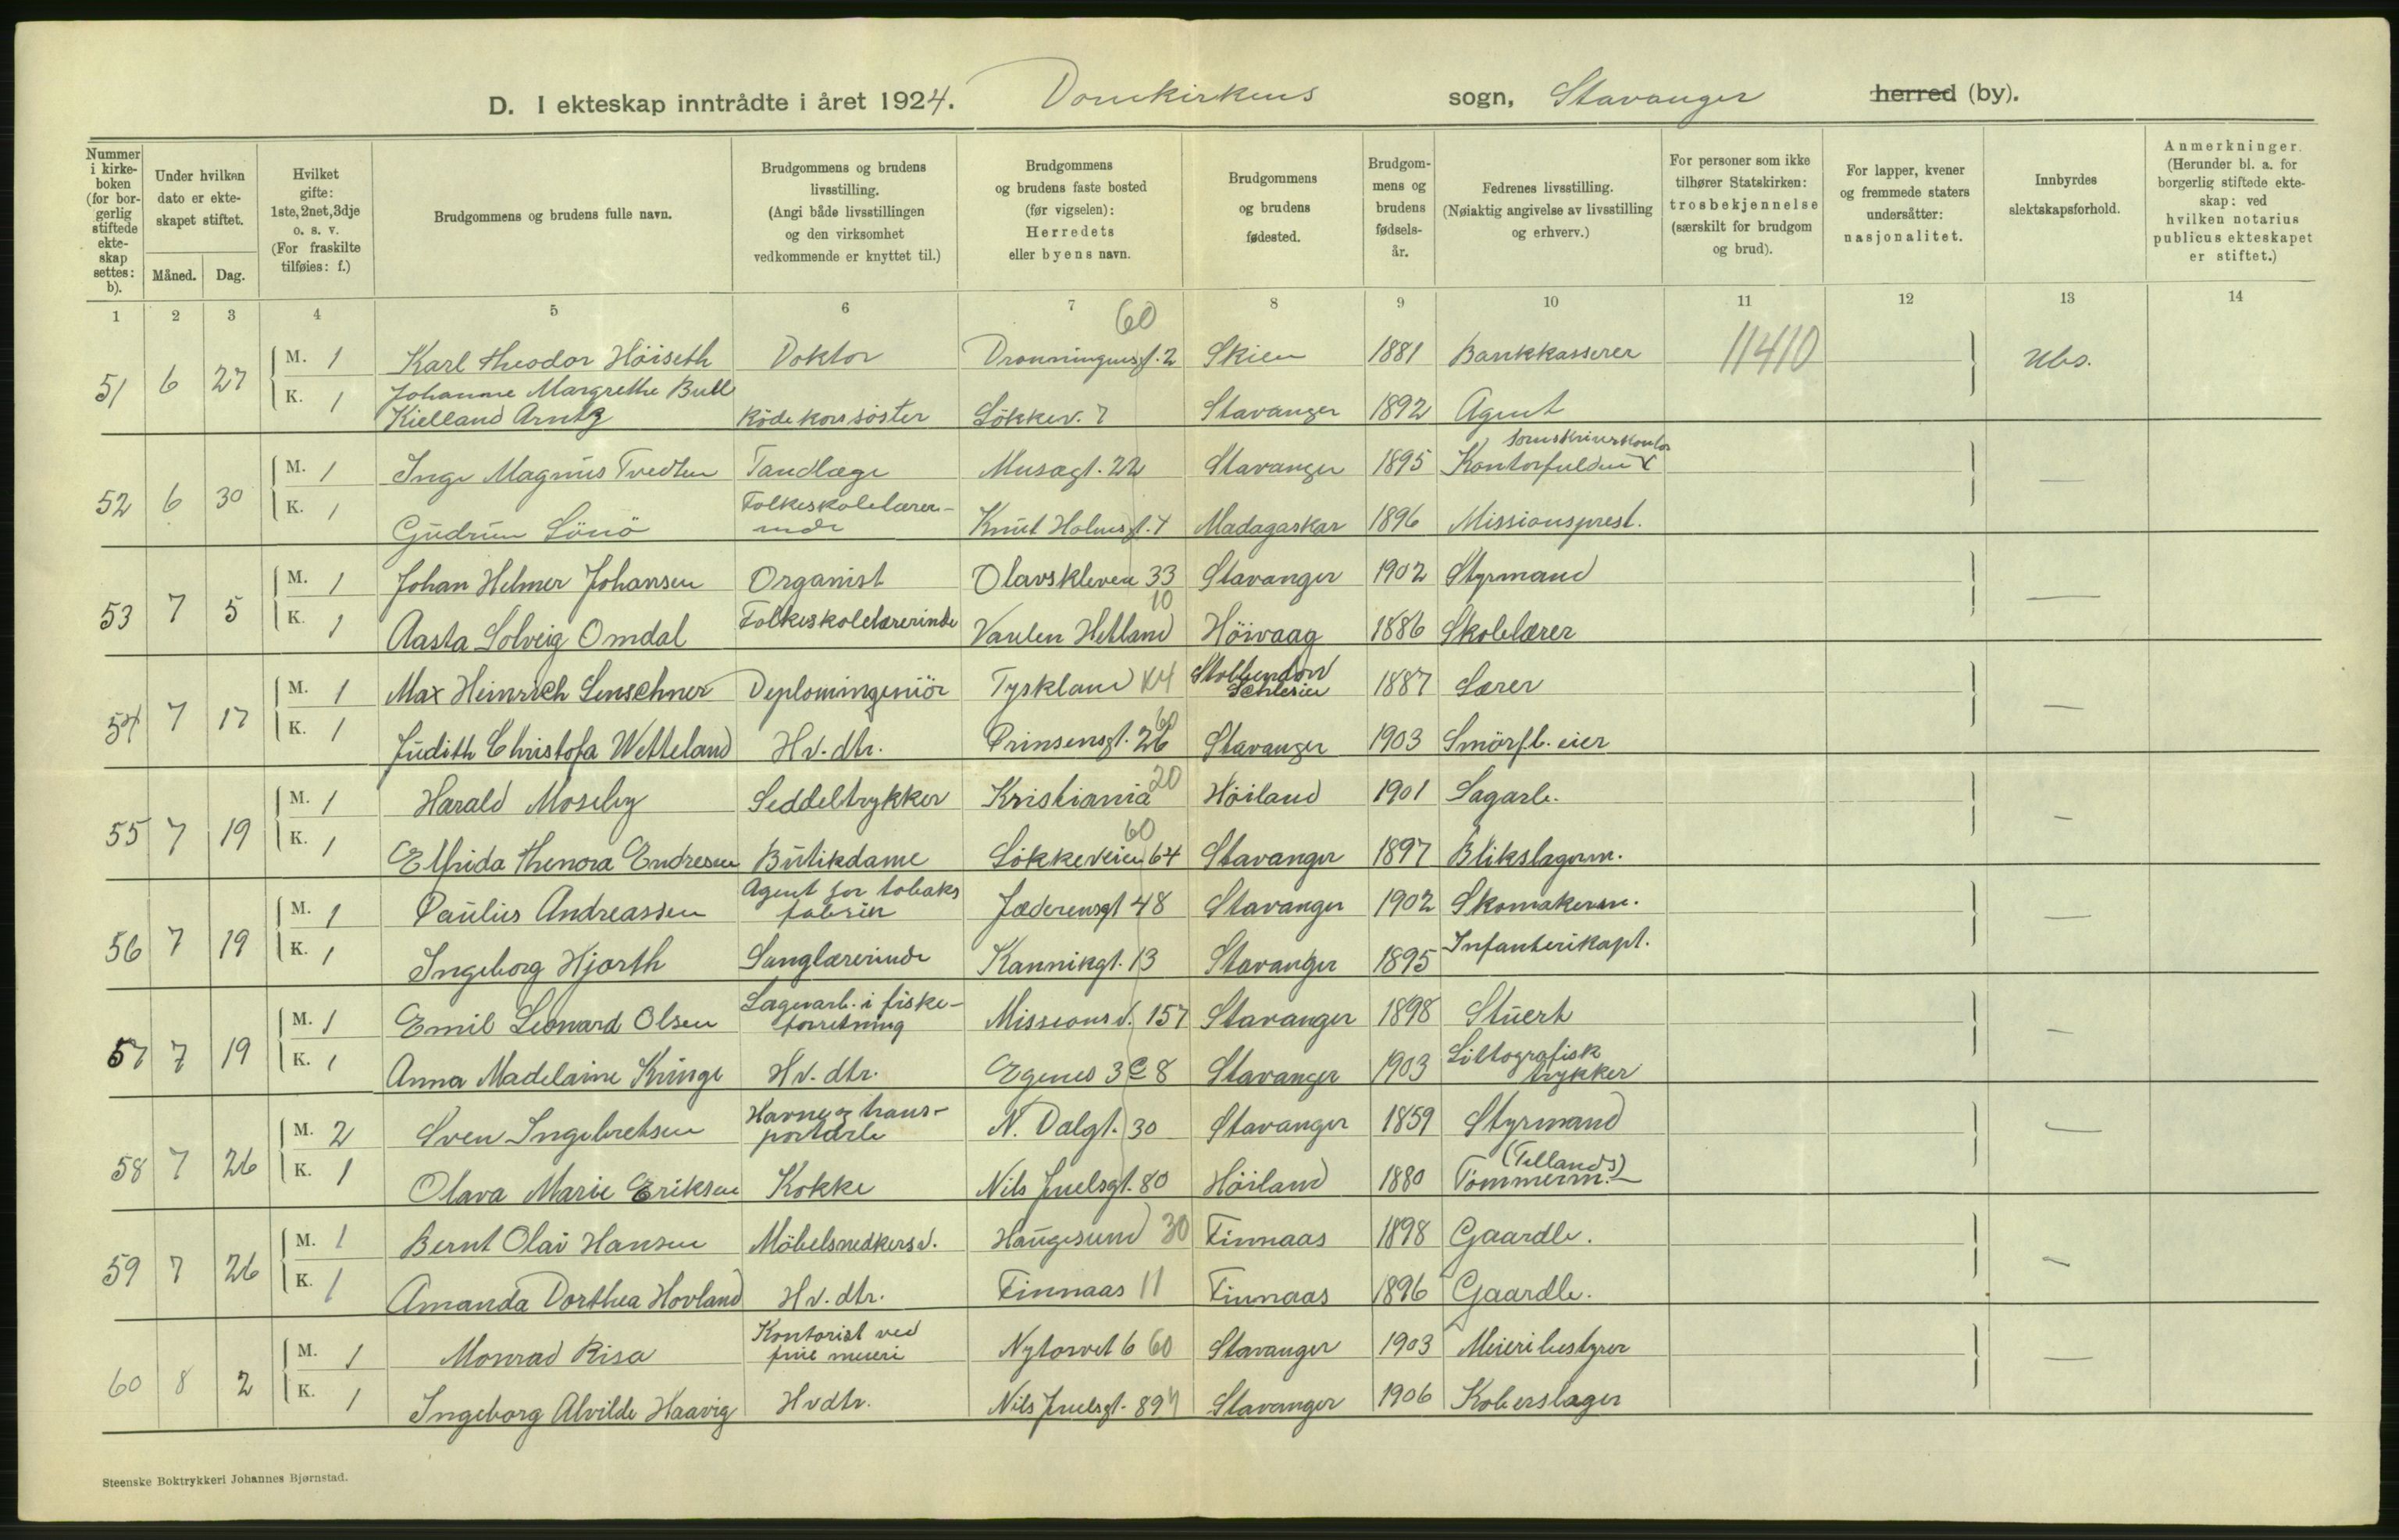 D. I ekteskap inntrådte i året 1924. Domkirkens sogn, Stavanger herred (by).
Nummer i kirke-boken (for bor-gerlig stiftede ekte-skap settes: b).
Under hvilken dato er ekte-skapet stiftet.
Måned. Dag.
Hvilket gifte: 1ste, 2net, 3dje o. s. v. (For fraskilte tilføies: f.)
Brudgommens og brudens fulle navn.
Brudgommens og brudens livsstilling. (Angi både livsstillingen og den virksomhet vedkommende er knyttet til.)
Brudgommens og brudens faste bosted (før vigselen): Herredets eller byens navn.
Brudgommens og brudens fødested.
Brudgom-mens og brudens fødsels-år.
Fedrenes livsstilling. (Nøiaktig angivelse av livsstilling og erhverv.)
For personer som ikke tilhører Statskirken: trosbekjennelse (særskilt for brudgom og brud).
For lapper, kvener og fremmede staters undersåtter: nasjonalitet.
Innbyrdes slektskapsforhold.
Anmerkninger. (Herunder bl. a. for borgerlig stiftede ekte-skap: ved hvilken notarius publicus ekteskapet er stiftet.)
1 2 3 4 5 6 7 8 9 10 11 12 13 14
60
51 6 27 M. 1 Karl Theodor Höiseth Doktor Dronningensgt. 2 Skien 1881 Bankkasserer 11410 Ubs.
K. 1 Johanne Margrethe Bull
Kielland Arntz Rödekorssöster Lökkev. 7 Stavanger 1892 Agent
Sorenskriverkontor
52 6 30 M. 1 Inge Magnus Tvedten Tandlæge Musægt. 22 Stavanger 1895 Kontorfuldm
Folkeskolelærer-
K. 1 Gudrun Sönö inde Knut Holmsgt. 7 Madagaskar 1896 Missionsprest.
53 7 5 M. 1 Johan Helmer Johansen Organist Olavskleven 33 Stavanger 1902 Styrmand
10
K. 1 Aasta Solveig Omdal Folkeskolelærerinde Vaulen Hetland Höivaag 1886 Skolelærer
54 7 17 M. 1 Max Heinrich Lenschner Deplomingeniör Tyskland Schlesien 1887 Lærer
60
K. 1 Judith Christofa Wetteland Hv. dtr. Prinsensgt. 26 Stavanger 1903 Smörfb. eier
20
55 7 19 M. 1 Harald Moseby Seddeltrykker Kristiania Höiland 1901 Sagarb.
60
K. 1 Elfrida Thenora Endresen Butikdame Lökkeveien 64 Stavanger 1897 Blikslagerm.
Agent for tobaks
56 7 19 M. 1 Paulus Andreassen fabrik Jæderensgt 48 Stavanger 1902 Skomakerm.
K. 1 Ingeborg Hjorth Sanglærerinde Kannikgt. 13 Stavanger 1895 Infanterikapt.
Lagerarb. i fiske-
57 7 19 M. 1 Emil Leonard Olsen forretning Missionsv. 157 Stavanger 1898 Stuert
Litografisk
K. 1 Anna Madelaine Kringe Hv. dtr. Egenes 3 C 8 Stavanger 1903 trykker
Havne og trans-
58 7 26 M. 2 Sven Ingebretsen portarb N. Dalgt. 30 Stavanger 1859 Styrmand
K. 1 Olava Marie Eriksen Kokke Nils Juelsgt. 80 Höiland 1880 Tömmerm.
59 7 26 M. 1 Bernt Olai Hansen Möbelsnedkersv. Haugesund 30 Finnaas 1898 Gaardb.
K. 1 Amanda Dorthea Hovland Hv. dtr. Finnaas 11 Finnaas 1896 Gaardb.
Kontorist ved
60 8 2 M. 1 Monrad Risa meieri Nytorvet 6 60 Stavanger 1903 Meieribestyrer
K. 1 Ingeborg Alvilde Haavig Hvdtr. Nils Juelsgt. 89 Stavanger 1906 Koberslager
Steenske Boktrykkeri Johannes Bjørnstad.